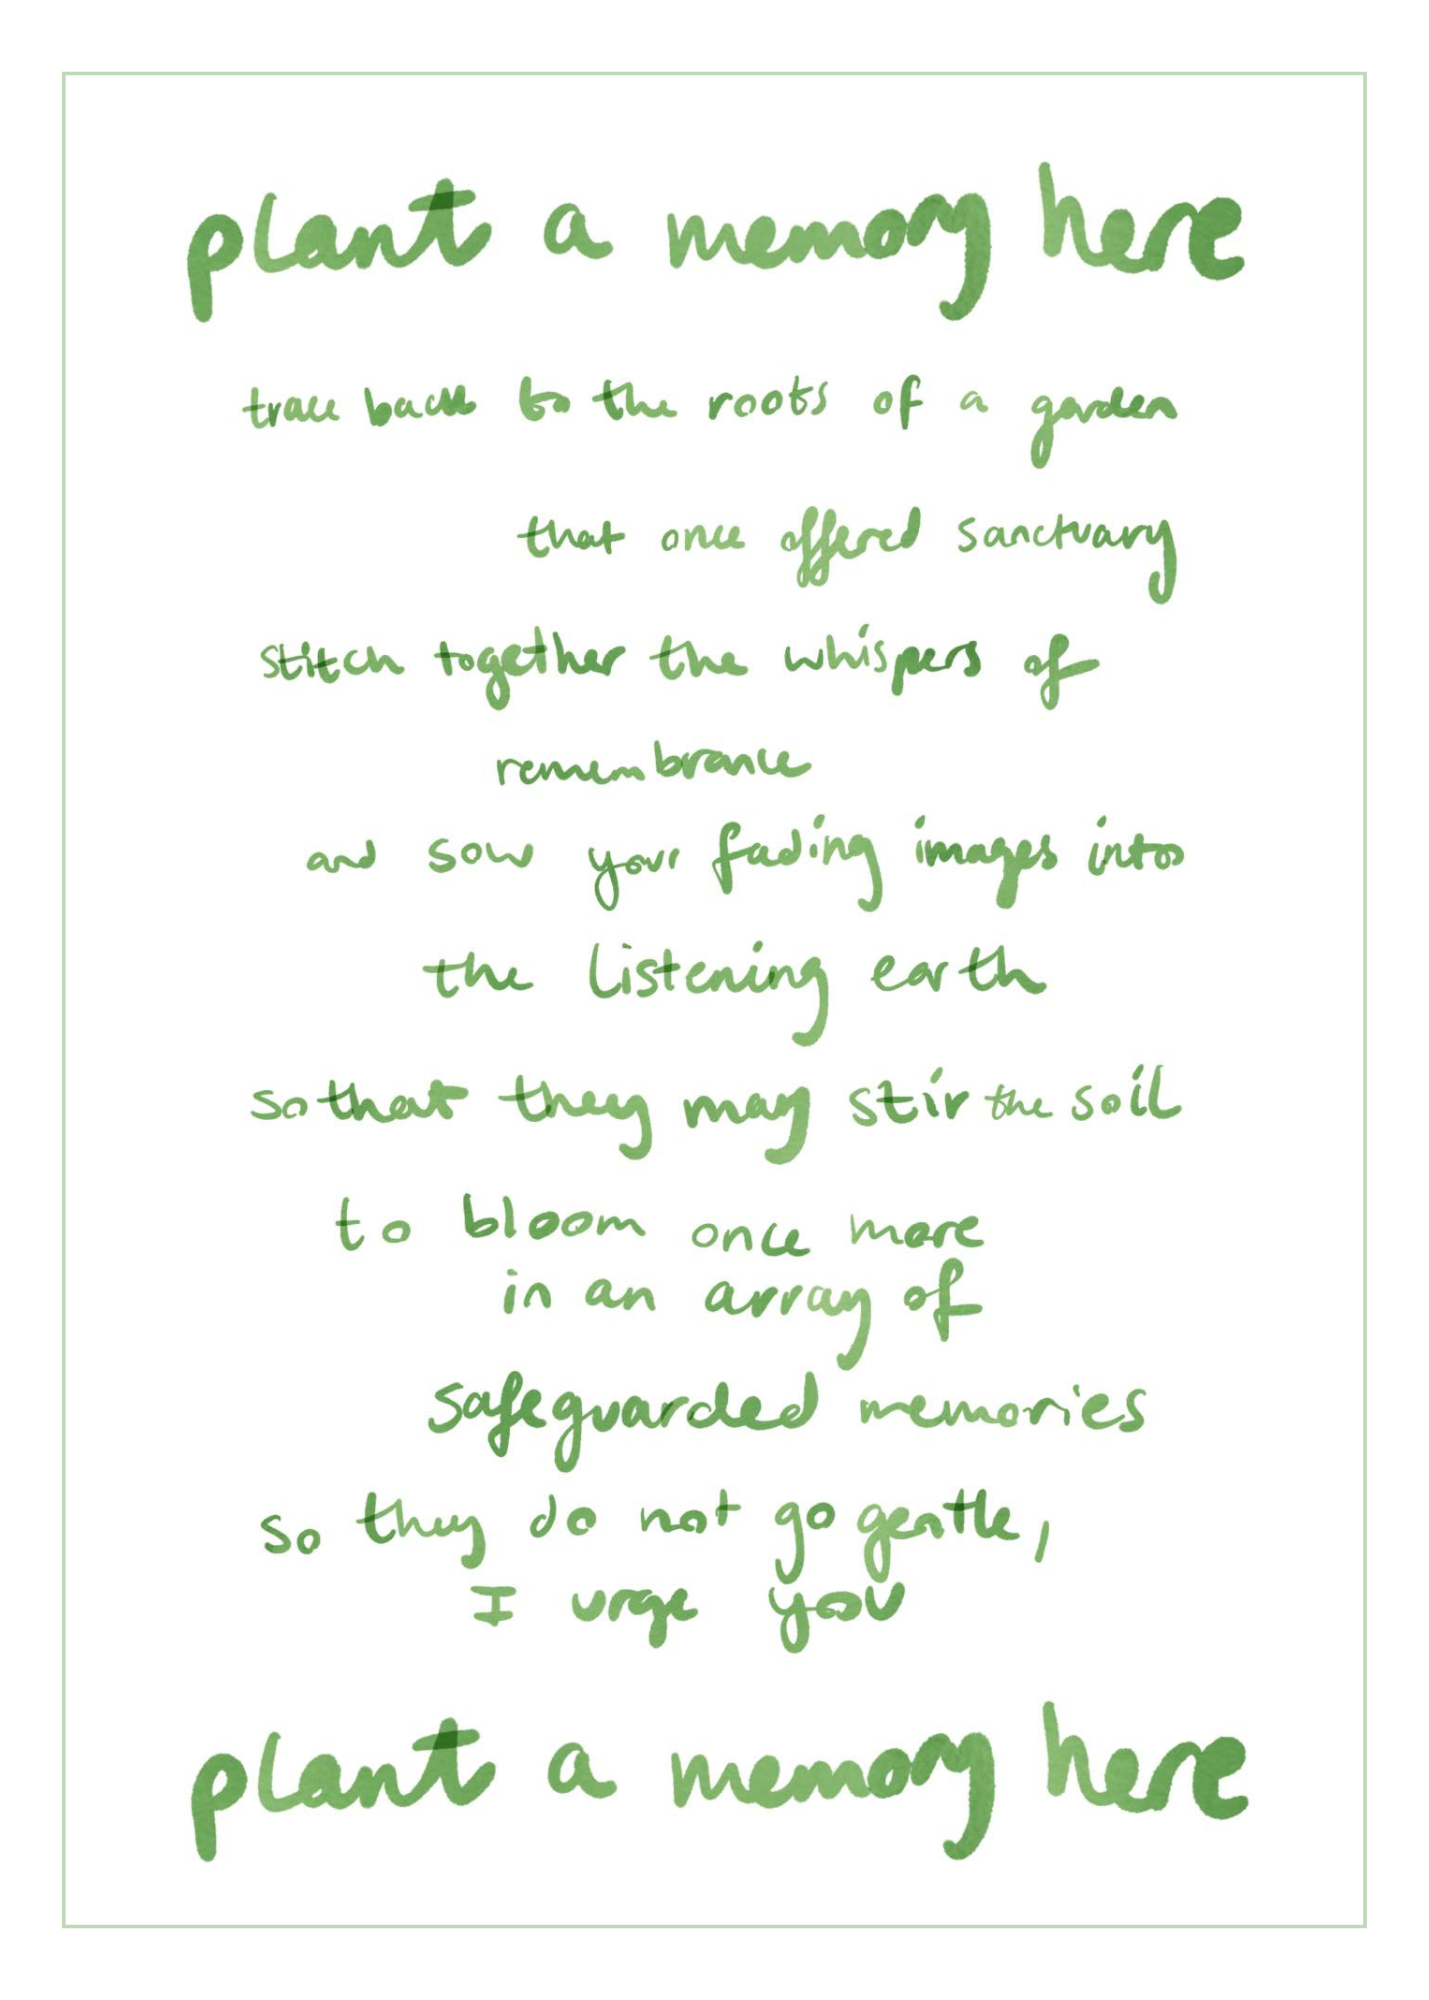 plant a memory here
trace back to the roots of a garden
that once offered sanctuary
stitch together the whispers of
remembrance
and sow your fading images into
the listening earth
so that they may stir the soil
to bloom once more
in an array of
safeguarded memories
so they do not go gentle,
I urge you
plant a memory here